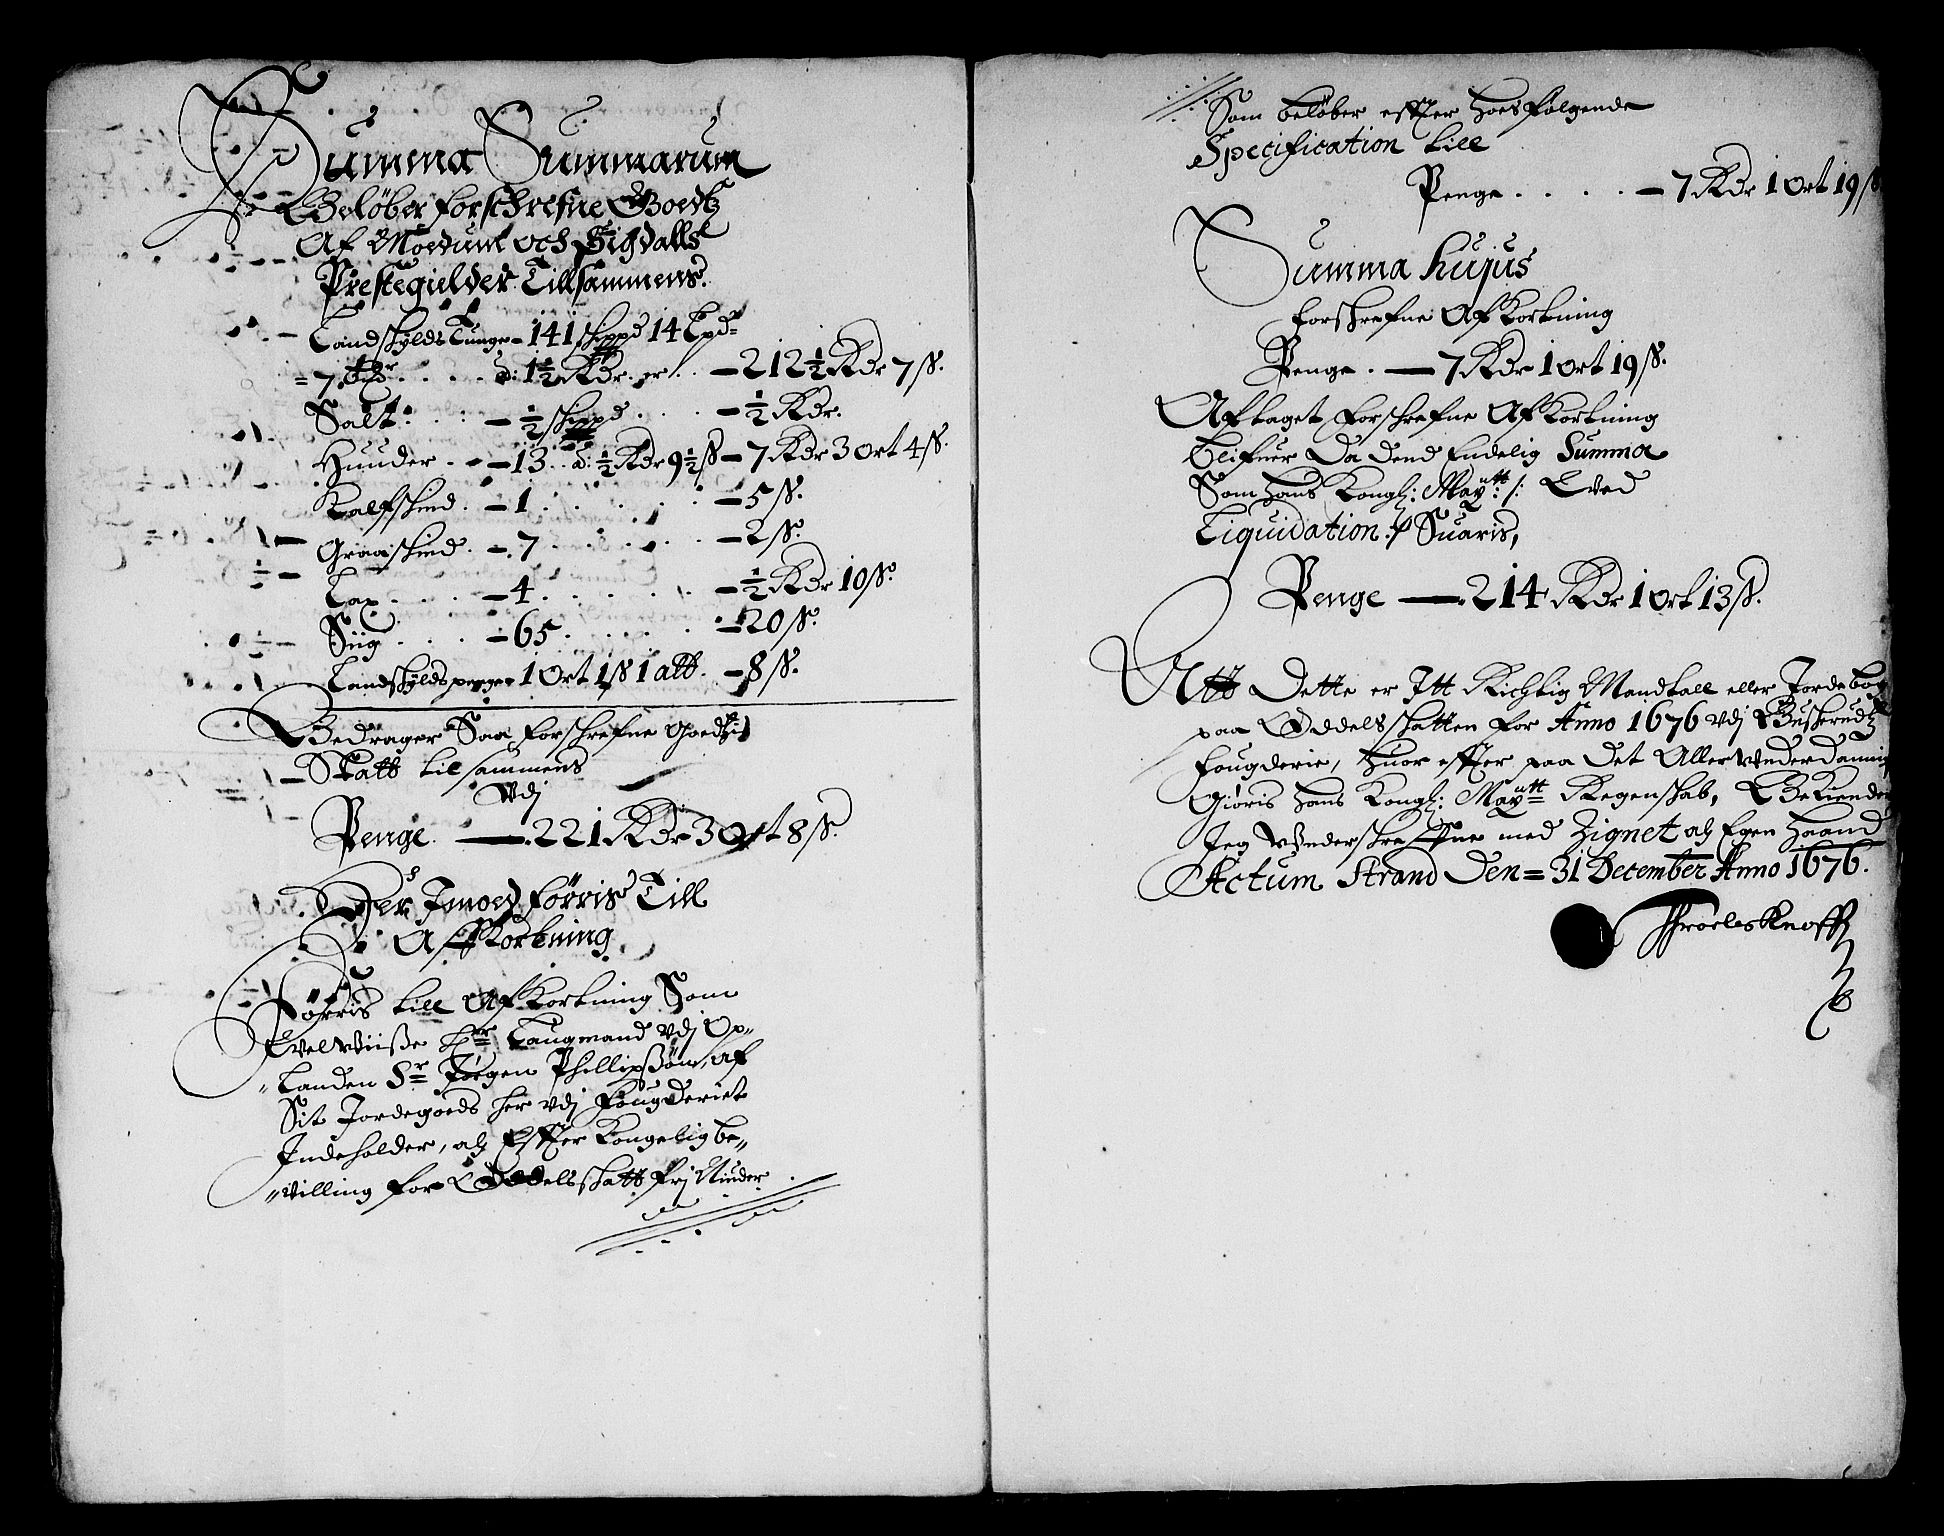 Summa Summarum
Beløber forschrefne Goedtz
Af Moedumb och Sigdalls
Prestegielder Tillsammens.
Landskylds Tunge - 141 skippd 14 Lpd=
= 7 . . . . á: 1½ Rdr. er . . - 212½ Rdr 7 ß.
Salt: . . : - ½ skippd . . . - ½ Rdr.
Huuder . . - 13 . . á: ½ Rdr 9½ ß - 7 Rdr 3 Ort 4 ß.
Kalfskind . - 1 . . . . . . - 5 ß.
Graaskind . - 7 . . . . . . - 2 ß.
Lax . . . . - 4 . . . . . . - ½ Rdr 10 ß.
Siig . . . - 65 . . . . . - 20 ß.
Landskylds penge - 1 Ort 1 ß 1 alb. - 8 ß.
Bedrager Saa forschrefne Goedtzis
Skatt tilsammens
Udj
Penge. — 221 Rdr 3 Ort 8 ß.
Der Imoed føris Till
AfKortning
Føris till AfKortning Som
Velwiisse Hr: Laugmand udj Op-
-Landen Sr: Jørgen Phillipssøn, af
Sit Jordegoeds her udj Fougderiet
Indeholder, als Efter Kongelig be-
-villing for Oddelsskatt frj Niuder
Som beløber effter hoesfølgende
Specification till
Penge . . . . - 7 Rdr 1 Ort 19 ß
Summa hujus
forskrefne AfKortning
Penge . — 7 Rdr 1 Ort 19 ß.
Aftaget forschrefne AfKortning
blifuer Da dend Endelig Summa
Som hans Kongl: Maytt: /:
Liquidation :/ Suaris,
Penge — 214 Rdr 1 Ort 13 ß.
Att Dette er Itt Richtig Mandtall eller Jordebog
paa Oddelsskatten for Anno 1676 udj Buskerudtz
Fougderie, huor effter paa det Allerunderdannig
Giøris hans Kongl: Maytt= Regenskab, Bekiender
Jeg Underskreffne med Zignet als Egen haand
Actum Strand Den = 31 December Anno 1676.
Throels Knoff